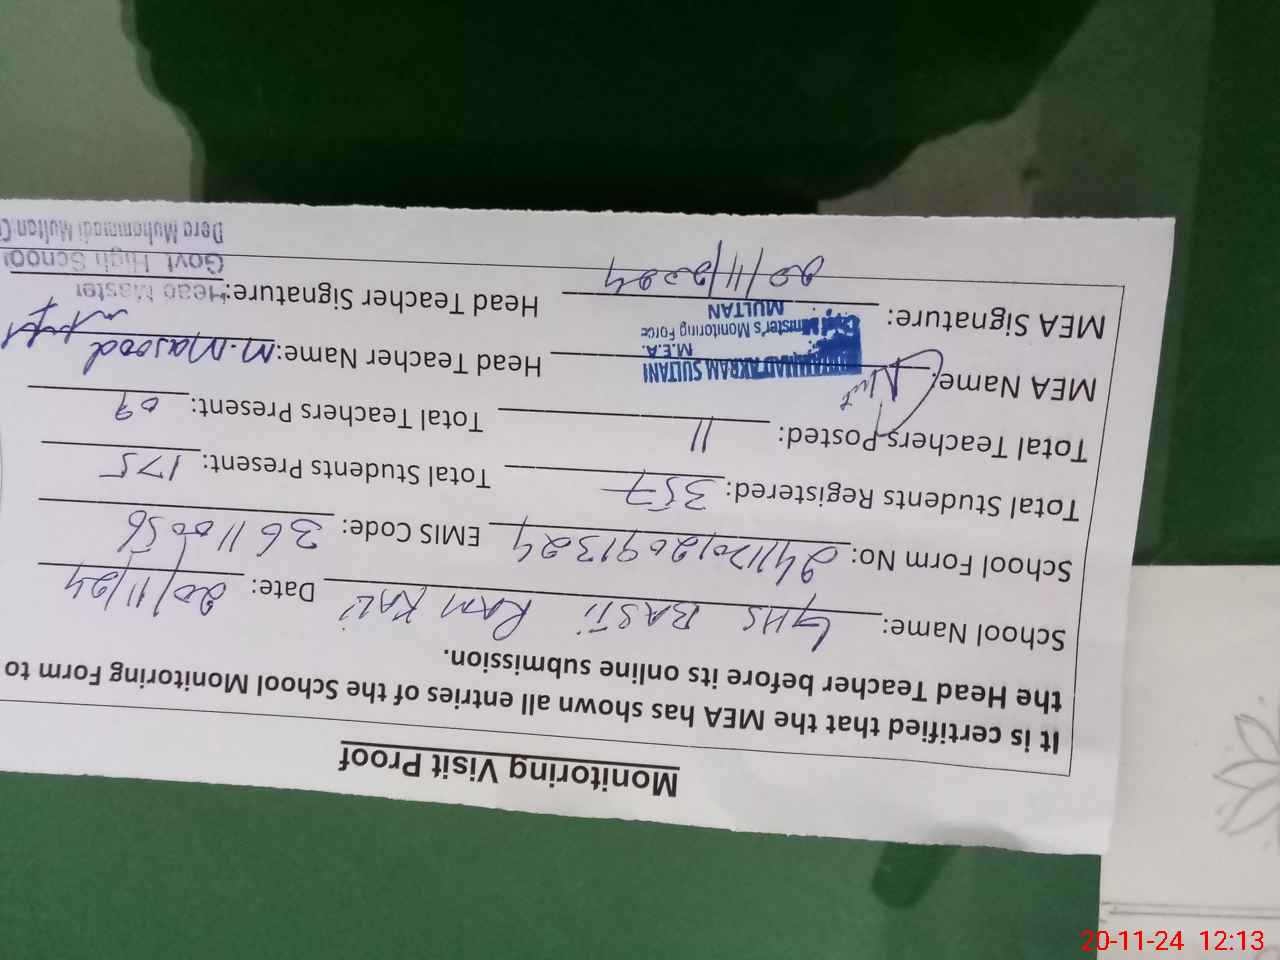 Monitoring Visit Proof
It is certified that the MEA has shown all entries of the School Monitoring Form to
the Head Teacher before its online submission.
School Name: GHS BASTI RAM KALI Date: 20/11/24
School Form No: 24112012091324 EMIS Code: 36110056
Total Students Registered: 357 Total Students Present: 175
Total Teachers Posted: 11 Total Teachers Present: 09
MEA Name: Head Teacher Name: M. Masood
AKRAM SULTANI
M.E.A.
Minister's Monitoring Force
MULTAN
MEA Signature: Head Teacher Signature:
20/11/2024
Head Master
Govt High School
Dera Muhammadi Multan
20-11-24 12:13